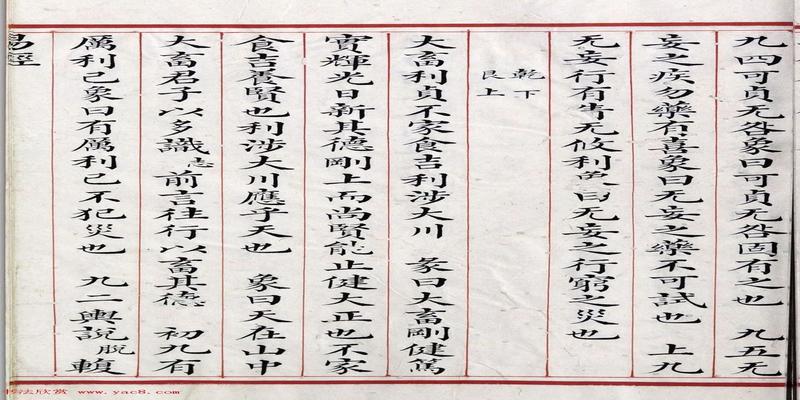 九四可貞无咎象曰可貞无咎固有之也 九五无
妄之疾勿藥有喜象曰无妄之藥不可試也 上九
无妄行有眚无攸利象曰无妄之行窮之災也
乾下
艮上
大畜利貞不家食吉利涉大川 彖曰大畜剛健篤
實輝光日新其德剛上而尚賢能止健大正也不家
食吉養賢也利涉大川應乎天也 象曰天在山中
大畜君子以多識志前言往行以畜其德 初九有
厲利已象曰有厲利已不犯災也 九二輿說脫輹
易經
法欣赏 www.yac8.com